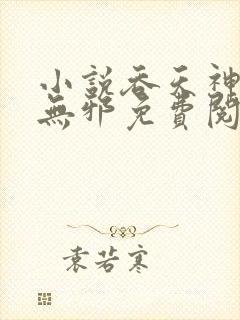 小說吞天神
無邪免費閱
袁若寒